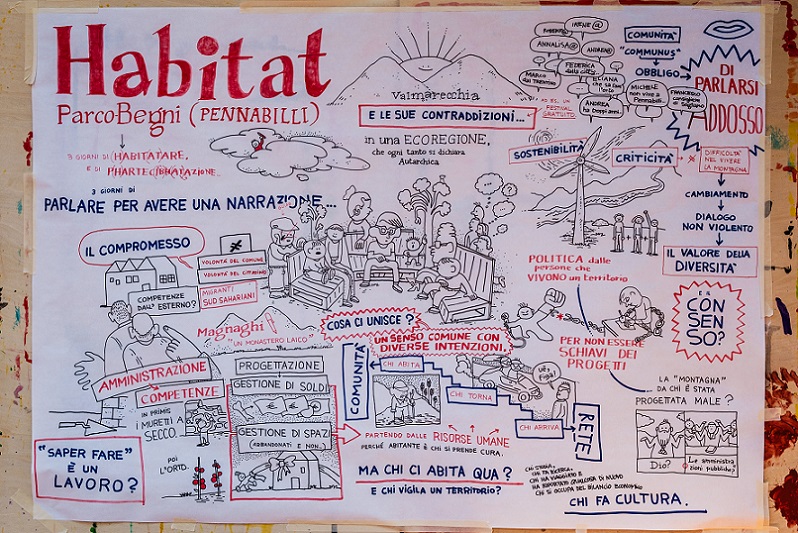 Habitat
ParcoBegni (PENNABILLI)
3 GIORNI DI HABITATARE,
E DI
3 GIORNI DI
PARLARE PER AVERE UNA NARRAZIONE...
Valmarecchia
E LE SUE CONTRADDIZIONI...
AD ES, UN
FESTIVAL
GRATUITO.
in una ECOREGIONE,
che ogni tanto si dichiara
Autarchica
ROBERTO@
IRENE@
ANNALISA@
ANDREA@
MARCO
dal Trentino
FEDERICA
dalla città
ELIANA
che sa con
l'orto
ANDREA
ha troppi anni.
MICHELE
non vive a
Pennabilli.
FRANCESCO
consigliere
di
COMUNITÀ
"COMMUNUS"
OBBLIGO
DI
PARLARSI
ADDOSSO
SOSTENIBILITÀ
CRITICITÀ
DIFFICOLTÀ
NEL VIVERE
LA MONTAGNA
CAMBIAMENTO
DIALOGO
NON VIOLENTO
IL VALORE DELLA
DIVERSITÀ
E IL
CON
SEN
SO?
IL COMPROMESSO
≠
VOLONTÀ DEL COMUNE
VOLONTÀ DEL CITTADINO
MIGRANTI
SUD SAHARIANI
COMPETENZE
DALL'ESTERNO?
Magnaghi
"UN MONASTERO LAICO"
COSA CI UNISCE?
UN SENSO COMUNE CON
DIVERSE INTENZIONI.
POLITICA dalle
persone che
VIVONO un territorio
PER NON ESSERE
SCHIAVI DEI
PROGETTI
AMMINISTRAZIONE
COMPETENZE
IN PRIMIS
I MURETTI A
SECCO.
POI
L'ORTO.
"SAPER FARE"
È UN
LAVORO?
PROGETTAZIONE
GESTIONE DI SOLDI
GESTIONE DI SPAZI
(ABBANDONATI E NON..)
COMUNITÀ
CHI ABITA
CHI TORNA
CHI ARRIVA
RETE
PARTENDO DALLE RISORSE UMANE
PERCHÉ ABITANTE È CHI SI PRENDE CURA.
MA CHI CI ABITA QUA?
E CHI VIGILA UN TERRITORIO?
CHI STUDIA,
CHI FA RICERCA,
CHI HA VIAGGIATO E
HA RIPORTATO QUALCOSA DI NUOVO
CHI SI OCCUPA DEL BILANCIO ECONOMICO
CHI FA CULTURA.
LA "MONTAGNA"
DA CHI È STATA
PROGETTATA MALE?
Dio?
Le amministra
zioni pubbliche?